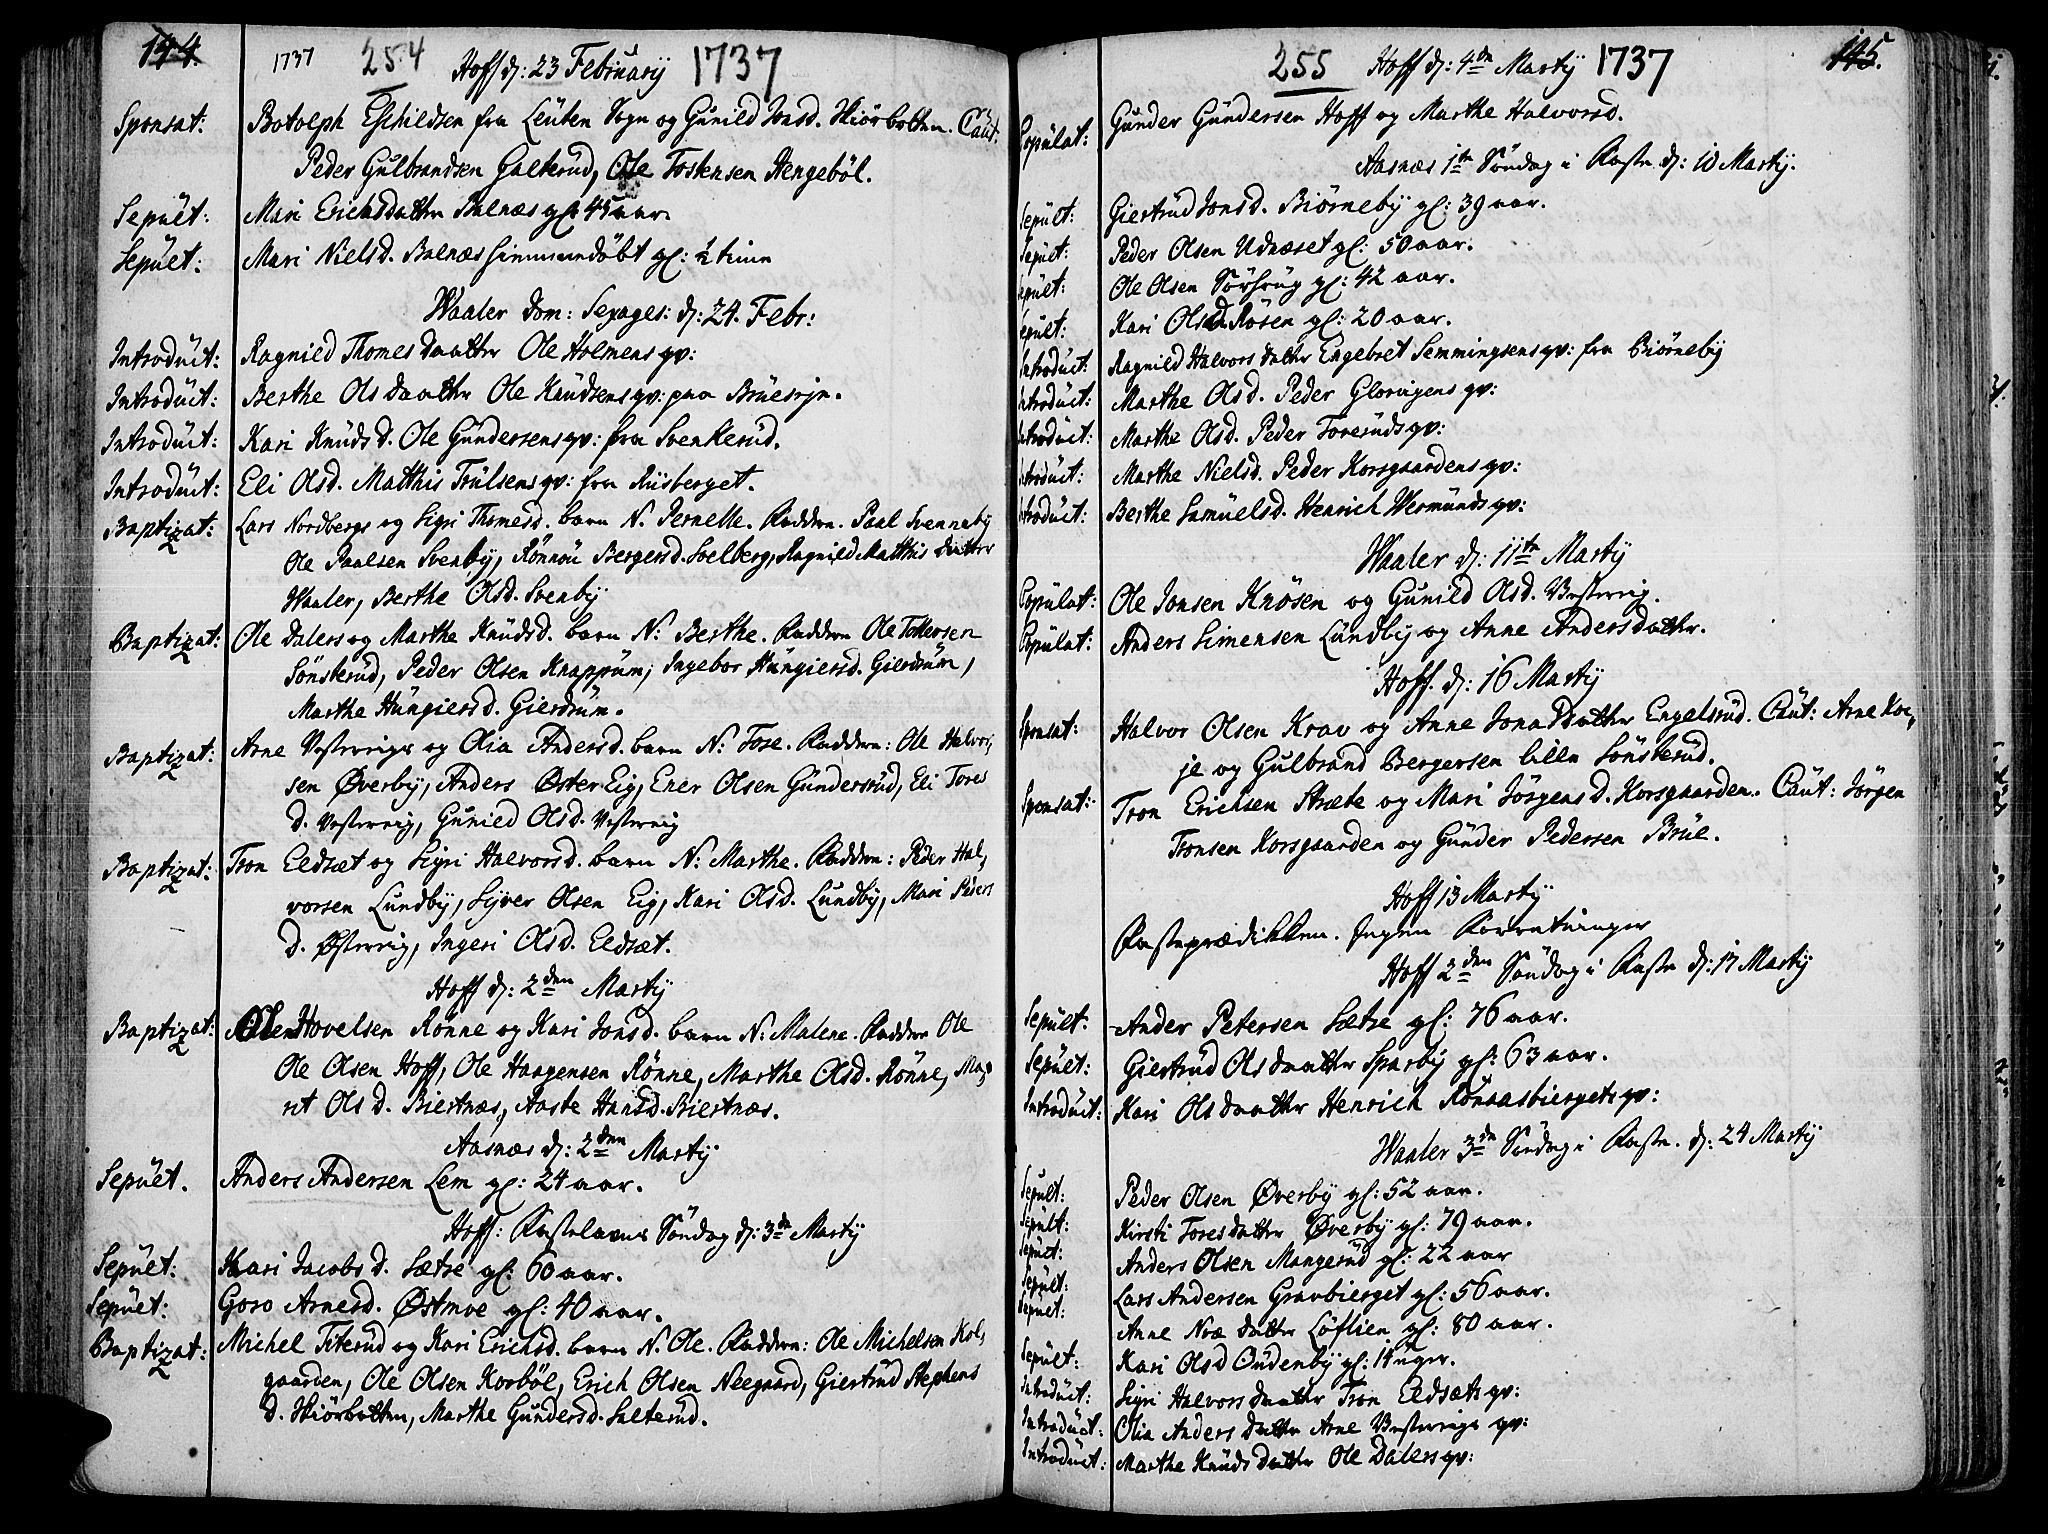 144.
1737 254 Hoff d: 23 Februarij 1737
Sponsat: Botolph Eschildsen fra Leuten Sogn og Gunild Jonsd. Skiörbotten. Caut:
Peder Gulbrandsen Galterud, Ole Tostensen Hengeböl.
Sepult: Mari Erichsdatter Balnæs gl: 45 aar.
Sepult: Mari Nielsd. Balnæs hiemmedöbt gl: ½ time
Waaler Dom: Sexages: d: 24. Febr:
Introduct: Ragnild Thomes daatter Ole Holmens qv:
Introduct: Berthe Olsdaatter Ole Knudsens qv: paa
Introduct: Kari Knudsd. Ole Gundersens qv: fra Svenkerud.
Introduct: Eli Olsd. Matthis Trulsens qv: fra Riisberget.
Baptizat: Lars Nordbergs og Sigri Thomesd. barn N. Pernelle. Faddere. Paal Svenneby
Ole Paalsen Svenby, Rönnou Bergersd. Soelberg, Ragnild Matthis datter
Waaler, Berthe Olsd. Svenby
Baptizat: Ole Dalers og Marthe Knudsd. barn N: Berthe. Faddere Ole Tollersen
Sönsterud, Peder Olsen Knappum, Ingebor Hungiersd. Gierdrum,
Marthe Hungiersd. Gierdrum.
Baptizat: Arne Vestereigs og Olia Andersd. barn N: Tore. Faddere: Ole Halvor,
sen Øverby, Anders Øster Eig, Ener Olsen Gundersrud, Eli Tores
d. Vestereig, Gunild Olsd. Vestereig
Baptizat: Tron Eldsæt og Sigri Halvorsd. barn N: Marthe. Faddere: Peder Hal,
vorsen Lundby, Syver Olsen Eig, Kari Olsd. Lundby, Mari Peders
d. Østereig, Ingeri Olsd. Eldsæt.
Hoff d: 2den Martij
Baptizat: Ole Hovelsen Rönne og Kari Jonsd. barn N: Malene. Faddere Ole
Ole Olsen Hoff, Ole Haagensen Rönne, Marthe Olsd. Rönne, Ma,
rit Olsd. Biertnæs, Aaste Hansd. Biertnæs.
Aasnæs d: 2den Martij
Sepult. Anders Andersen Lem gl: 24 aar.
Hoff: Fastelavns Söndag d: 3de Martij
Sepult: Kari Jacobsd. Sætre gl: 60 aar.
Sepult: Goro Arnesd. Östmoe gl: 40 aar.
Baptizat: Michel Titerud og Kari Erichsd. barn N. Ole. Faddere: Ole Michelsen Kol,
gaarden, Ole Olsen Korböl, Erich Olsen Neegaard, Giertrud Stephens
d. Skiörbotten, Marthe Gundersd. Salterud.
255 Hoff d: 4de Martij 1737 145.
Copulat: Gunder Gundersen Hoff og Marthe Halvorsd.
Aasnæs 1te Söndag i Faste. d: 10 Martij.
Sepult: Giertrud Jonsd. Biörneby gl: 39 aar.
Sepult: Peder Olsen Udnæset gl: 50 aar.
Sepult: Ole Olsen Sörhrug gl: 42 aar.
Sepult: Kari Olsd Rösen gl: 20 aar.
Introduct: Ragnild Halvors datter Engebret Semmingsens qv: fra Biörneby
Introduct: Marthe Olsd. Peder Glorvigens qv:
Introduct: Marthe Olsd. Peder Toreruds qv:
Introduct: Marthe Nielsd. Peder Korsgaardens qv:
Introduct: Berthe Samuelsd. Henrich Wermunds qv:
Waaler d: 11te Martij
Copulat: Ole Jonsen Knösen og Gunild Olsd. Vestereig.
Copulat: Anders Simensen Lundby og Anne Andersdatter.
Hoff. d: 16 Martij
Sponsat: Halvor Olsen Krav og Anne Jonasdaatter Engelsrud. Caut: Arne Koe,
je og Gulbrand Bergersen lille Sönsterud.
Sponsat: Tron Erichsen Stræte og Mari Jörgensd. Korsgaarden. Caut: Jörgen
Tronsen Korsgaarden og Gunder Pedersen Brue.
Hoff 13 Martij
Fasteprædikken. Ingen Forretninger
Hoff 2den Söndag i Faste d: 17 Martij
Sepult: Ander Petersen Sætre gl: 76 aar.
Sepult: Giertrud Olsdaatter Sparby gl: 63 aar.
Introduct: Kari Olsdaatter Henrich Rönaasbiergets qv:
Waaler 3de Söndag i Faste. d: 24 Martij
Sepult: Peder Olsen Øverby gl: 52 aar.
Sepult: Kirsti Toresdatter Øverby gl: 79 aar.
Sepult: Anders Olsen Mangerud gl: 22 aar
Sepult: Lars Andersen Gravbierget gl: 56 aar.
Sepult: Anne datter Löflien gl: 80 aar.
Sepult: Kari Olsd Oudenby gl: 14 uger.
Introduct: Sigri Halvorsdaatter Tron Eldsæts qv:
Introduct: Olia Andersdatter Arne Vestereigs qv:
Introduct: Marthe Knudsdatter Ole Dalers qv: